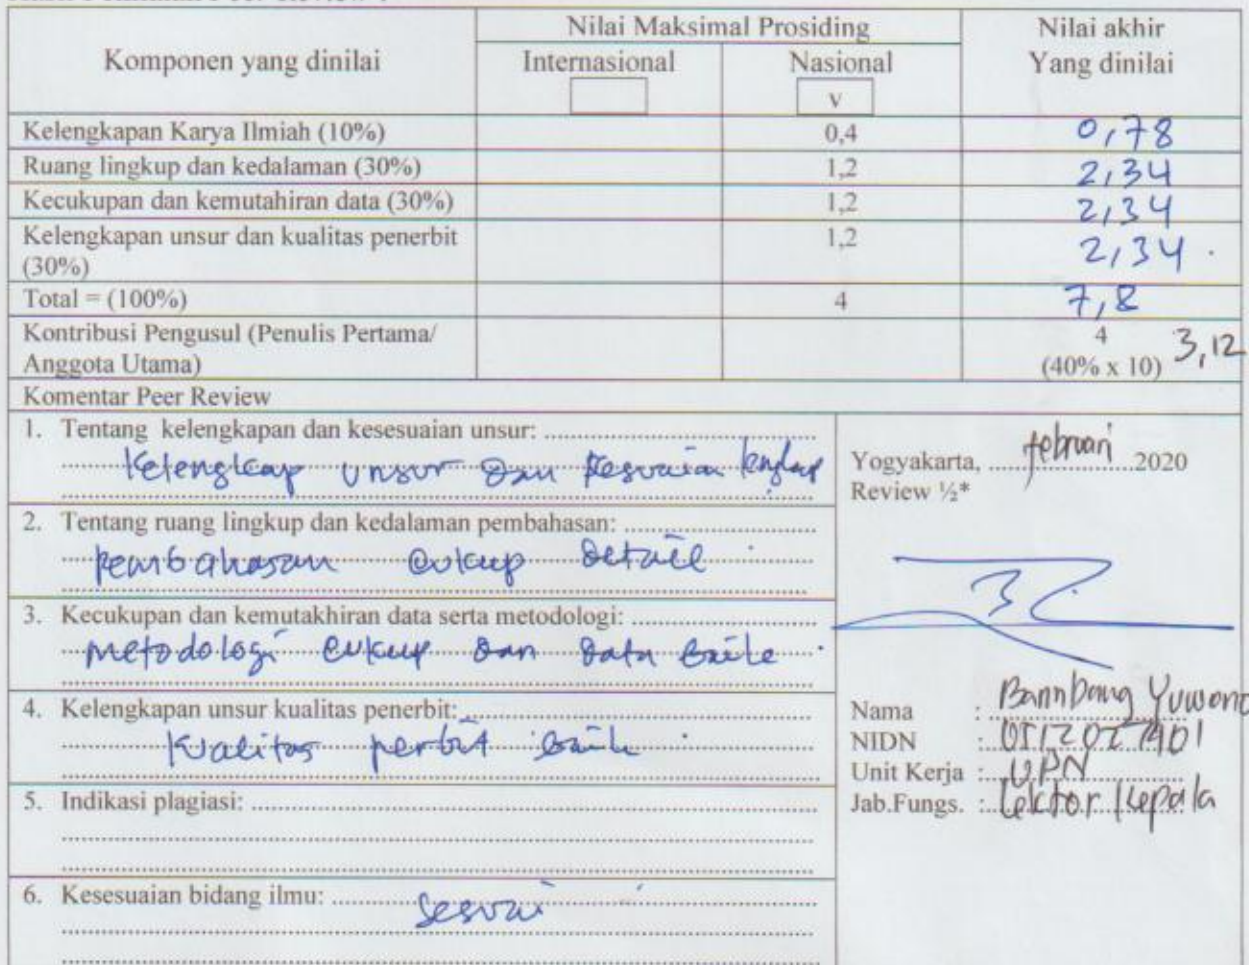 Komponen yang dinilai
Nilai Maksimal Prosiding
Nilai akhir
Yang dinilai
Internasional
Nasional
v
Kelengkapan Karya Ilmiah (10%) 0,4 0,78
Ruang lingkup dan kedalaman (30%) 1,2 2,34
Kecukupan dan kemutahiran data (30%) 1,2 2,34
Kelengkapan unsur dan kualitas penerbit 1,2 2,34
(30%)
Total = (100%) 4 7,8
Kontribusi Pengusul (Penulis Pertama/ 4 3,12
Anggota Utama) (40% x 10)
Komentar Peer Review
1. Tentang kelengkapan dan kesesuaian unsur:
Kelengkap unsur dan kesuaian lengkap
2. Tentang ruang lingkup dan kedalaman pembahasan:
pembahasan cukup detail
3. Kecukupan dan kemutakhiran data serta metodologi:
metodologi cukup dan data baik
4. Kelengkapan unsur kualitas penerbit:
Kualitas perbit baik
5. Indikasi plagiasi:
6. Kesesuaian bidang ilmu: sesuai
Yogyakarta, februari 2020
Review ½*
Nama : Bambang Yuwono
NIDN :
Unit Kerja : UPN
Jab.Fungs. : Lektor Kepala